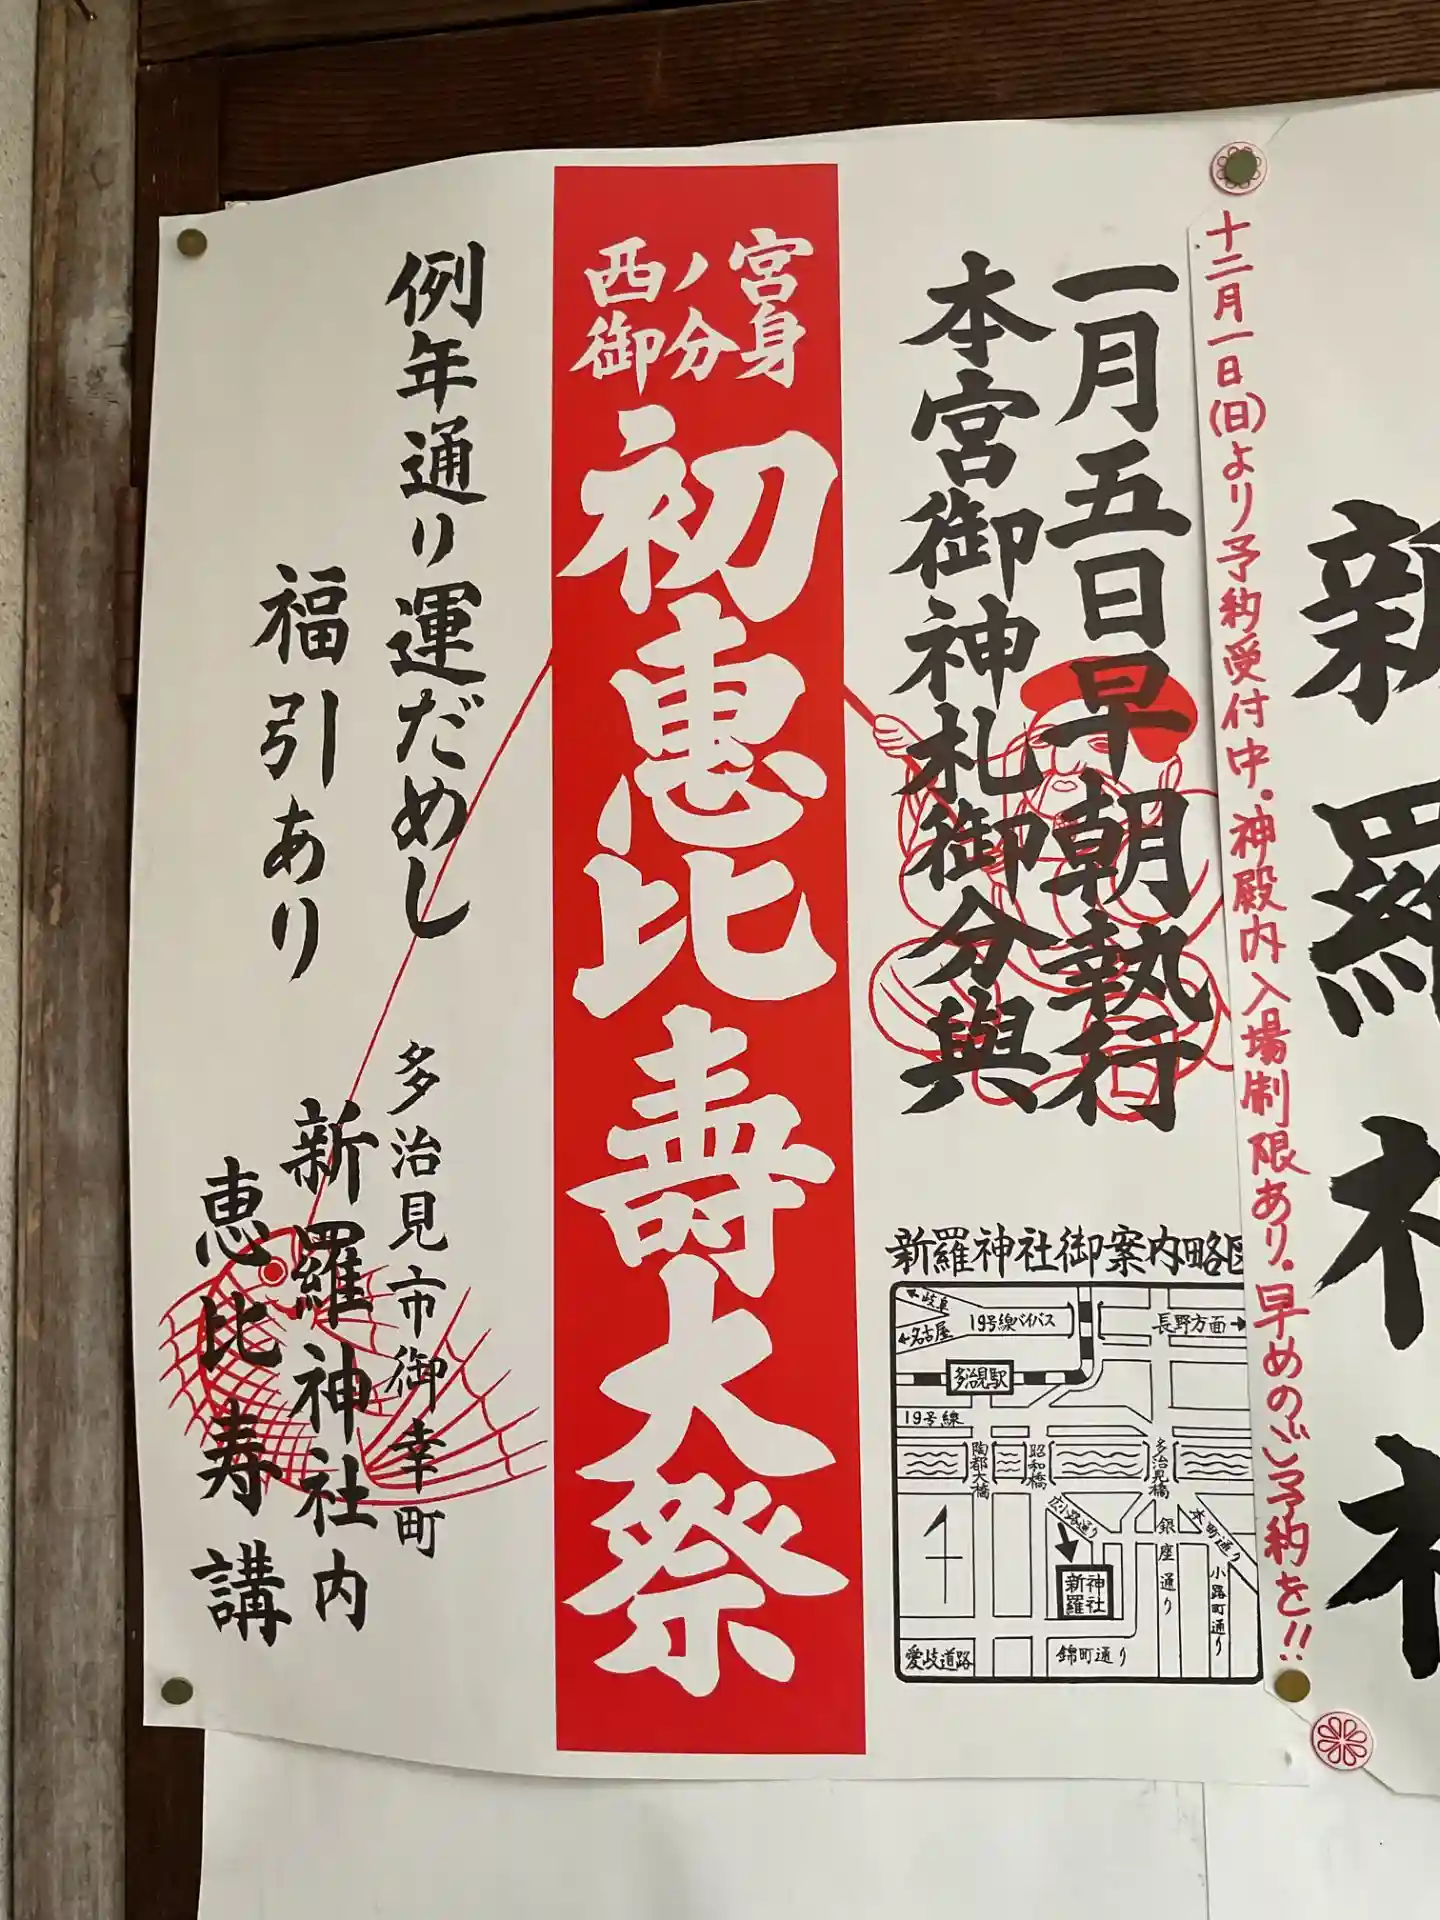 新羅神社
十二月一日(日)より予約受付中。神殿内入場制限あり。早めのご予約を!!
一月五日早朝執行
本宮御神札御分與
西ノ宮
御分身
初恵比壽大祭
例年通り運だめし
福引あり
多治見市御幸町
新羅神社内
恵比寿講
新羅神社御案内略図
←岐阜
←名古屋
19号線バイパス
長野方面→
多治見駅
19号線
陶都大橋
昭和橋
多治見橋
広小路通り
銀座通り
本町通り
小路町通り
新羅神社
愛岐道路
錦町通り